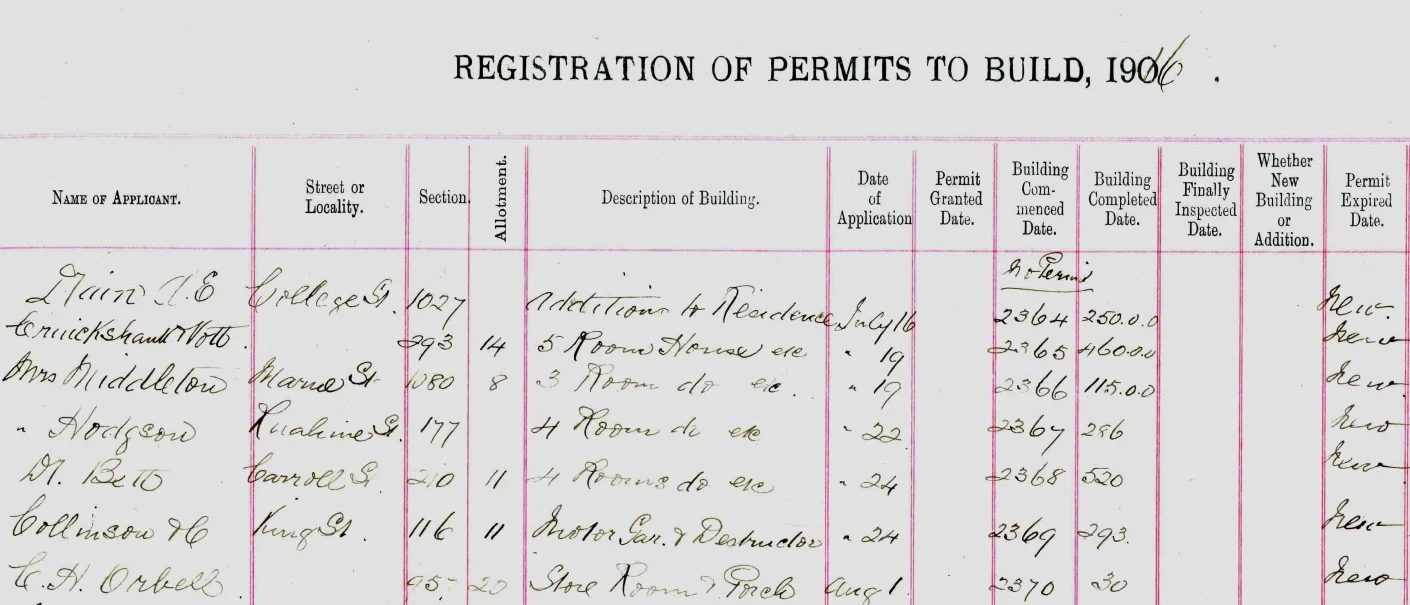 REGISTRATION OF PERMITS TO BUILD, 1916.
NAME OF APPLICANT. Street or Locality. Section. Allotment. Description of Building. Date of Application Permit Granted Date. Building Commenced Date. Building Completed Date. Building Finally Inspected Date. Whether New Building or Addition. Permit Expired Date.
No Permit
College St. 1027 Additions to Residence July 16 2364 250.0.0 New.
Cruickshank & 293 14 5 Room House etc " 19 2365 460.0.0 New
Mrs Middleton Marne St 1080 8 3 Room do etc. " 19 2366 115.0.0 New
" Hodgson Ruahine St. 177 4 Room do etc " 22 2367 286 New
Bett Carroll St 210 11 4 Rooms do etc " 24 2368 520 New
Collinson & C King St. 116 11 Motor Gar. & Destructor " 24 2369 293. New
C. H. Orbell. 957 20 Store Room & Porch Aug 1 2370 30 New